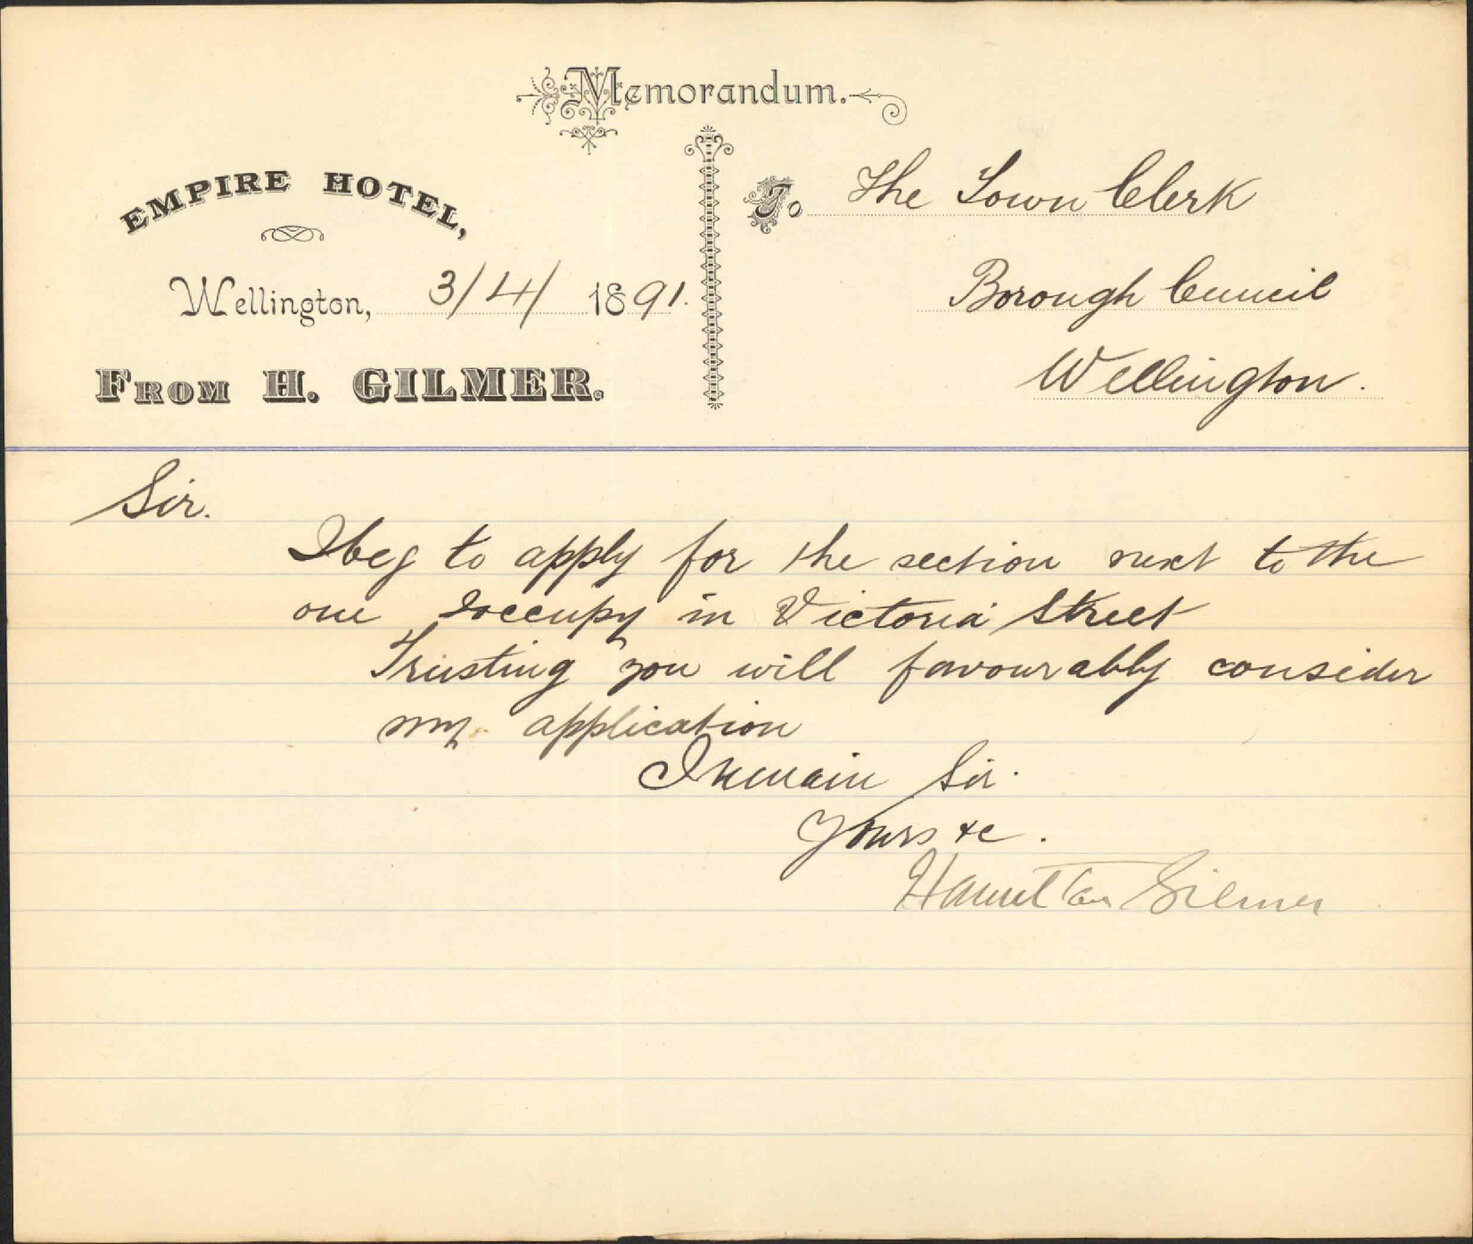 Memorandum.
EMPIRE HOTEL,
Wellington, 3/4/ 1891.
FROM H. GILMER.
To The Town Clerk
Borough Council
Wellington.
Sir.
I beg to apply for the section next to the
one I occupy in Victoria Street
Trusting you will favourably consider
my application
I remain Sir.
Yours &c.
Hamilton Gilmer